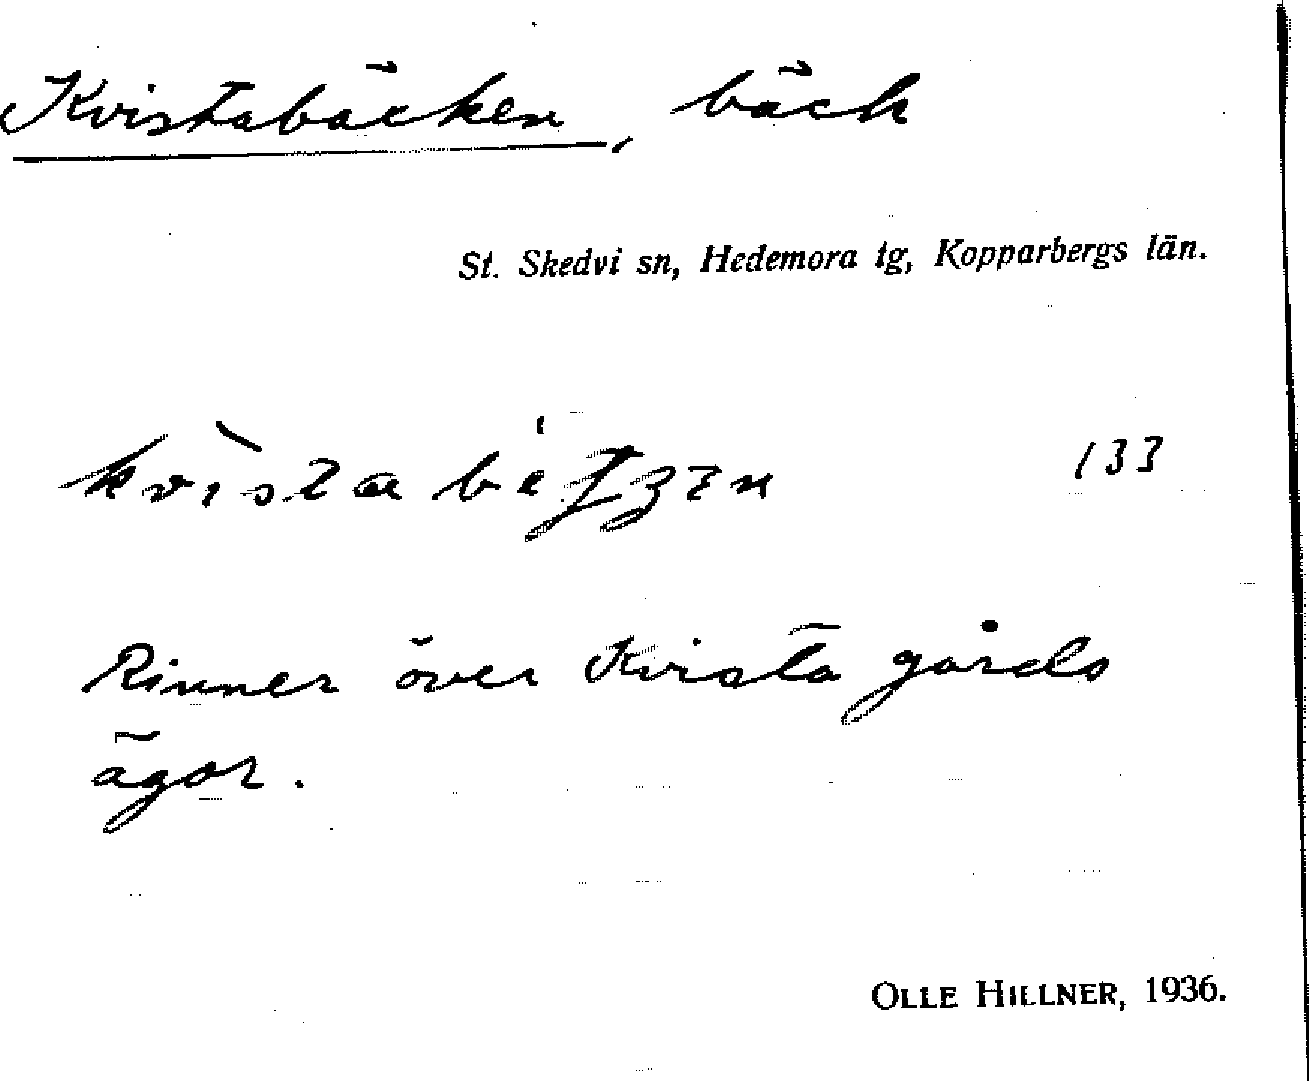 Kvistabäcken, bäck
St. Skedvi sn, Hedemora tg, Kopparbergs län.
133
Rinner över Kvista gårds
ägor.
OLLE HILLNER, 1936.